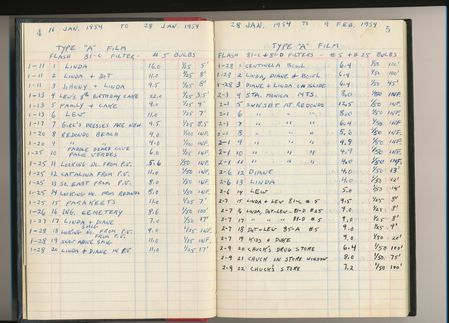 4 16 JAN. 1954 TO 28 JAN. 1954
TYPE "A" FILM
FLASH 81-C FILTERS - #5 BULBS
1-11 1 LINDA 16.0 1/25 5'
1-11 2 LINDA + DOT 11.0 1/25 8'
1-11 3 JOHNNY + LINDA 9.5 1/25 8'
1-13 4 LEW'S 5th BIRTHDAY CAKE 22.0 1/25 3.5'
1-13 5 FAMILY + CAKE 9.0 1/25 9'
1-13 6 LEW 11.0 1/25 7'
1-17 7 GIRL'S DRESSES ARE NEW 9.5 1/25 8.5'
1-20 8 REDONDO BEACH 4.0 1/50 INF.
1-20 9 " " 4.0 1/50 INF.
1-25 10 PALOS VERDES 6.0 1/25 INF.
1-25 11 LOOKING NO. FROM P.V. 5.6 1/50 INF.
1-25 12 CATALINA FROM P.V. 11.0 1/50 INF.
1-25 13 SO. EAST FROM P.V. 8.0 1/50 INF.
1-25 14 LOOKING NO. FROM REDONDO 8.0 1/50 INF.
1-25 15 PARAKEETS 11.0 1/25 7'
1-26 16 ING. CEMETERY 8.6 1/50 100'
1-27 17 LINDA + DIANE 7.0 1/50 17'
1-28 18 LOOKING NO. FROM P.V. 9.0 1/25 INF.
1-28 19 SAME ABOVE 11.0 1/25 INF.
1-28 20 LINDA + DIANE IN P.V. 11.0 1/25 17'
28 JAN. 1954 TO 9 FEB. 1954 5
TYPE "A" FILM
FLASH 81-C + 81-D FILTERS - #5 + #25 BULBS
1-28 1 CENTINELA BOWL 6.4 1/50 100'
1-28 2 LINDA, DIANE + BOWL 6.4 1/50
1-28 3 DIANE + LINDA ON SLIDE 6.4 1/50 45'
1-29 4 STA. MONICA MTS. 8.0 1/50 INF.
2-1 5 SUNSET AT REDONDO 12.5 1/50 INF.
2-1 6 " " " 8.0 1/50 INF.
2-1 7 " " " 6.4 1/50 INF.
2-1 8 " " " 5.6 1/50 INF.
2-1 9 " " " 4.8 1/50 INF.
2-1 10 " " " 4.5 1/50 INF.
2-1 11 " " " 4.0 1/50 INF.
2-6 12 DIANE 4.0 1/50 13'
2-6 13 LINDA 4.0 1/50 12'
2-6 14 LEW 5.0 1/50 14'
2-7 15 LINDA + LEW 81-C #5 9.5 1/25 8'
2-7 16 LINDA, DOT + LEW 81-D #25 9.0 1/25 9'
2-7 17 " " 81-D #5 9.5 1/25 8'
2-7 18 DOT + LEW 85-A #5 9.0 1/25 9'
2-7 19 KIDS + DUKE 9.0 1/50 20'
2-9 20 CHUCK'S DRUG STORE 6.4 1/50 100'
2-9 21 CHUCK IN STORE WINDOW 8.0 1/50 75'
2-9 22 CHUCK'S STORE 7.2 1/50 100'